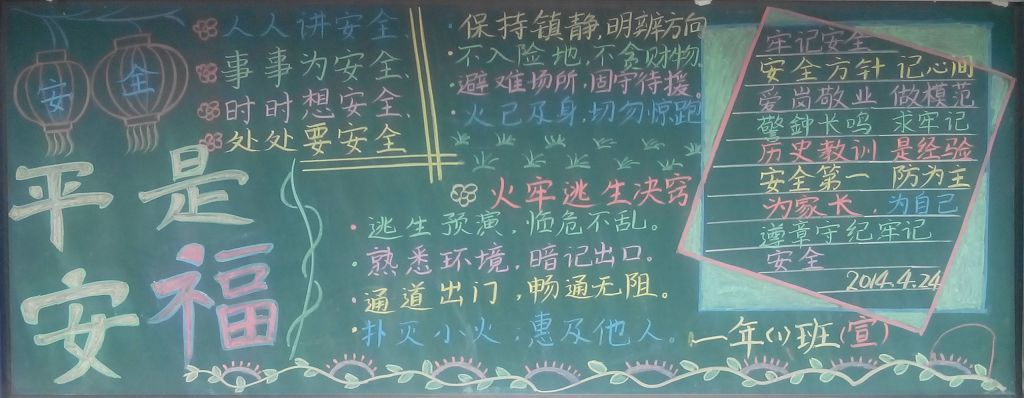 安全
平安
是福
人人讲安全、
事事为安全、
时时想安全、
处处要安全
保持镇静,明辨方向
不入险地,不贪财物
避难场所,固守待援。
火已及身,切勿惊跑
火牢逃生决窍
逃生预演,临危不乱。
熟悉环境,暗记出口。
通道出门,畅通无阻。
扑灭小火,惠及他人。
牢记安全
安全方针 记心间
爱岗敬业 做模范
警鈡长鸣 求牢记
历史教训 是经验
安全第一 防为主
为家长,为自己
遵章守纪牢记
安全
2014.4.24
一年(1)班(宣)